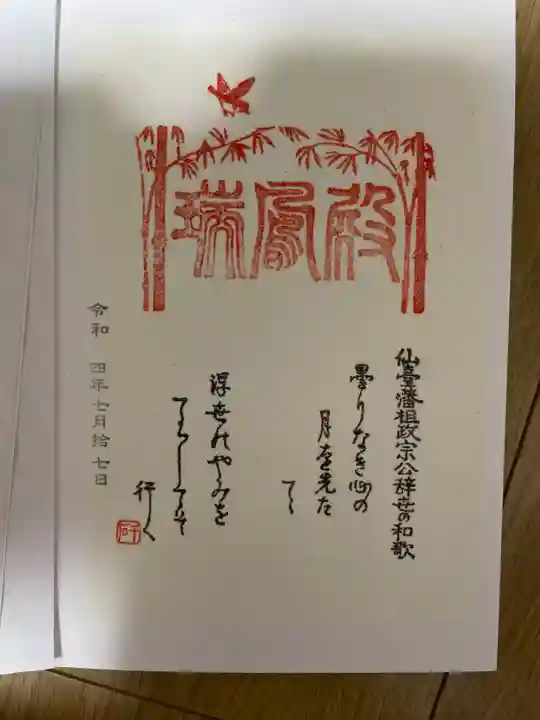 瑞鳳殿
仙臺藩祖政宗公辞世の和歌
曇りなき心の
月を先だ
てゝ
浮世のやみを
てらしてぞ
行く
令和 四年七月拾七日